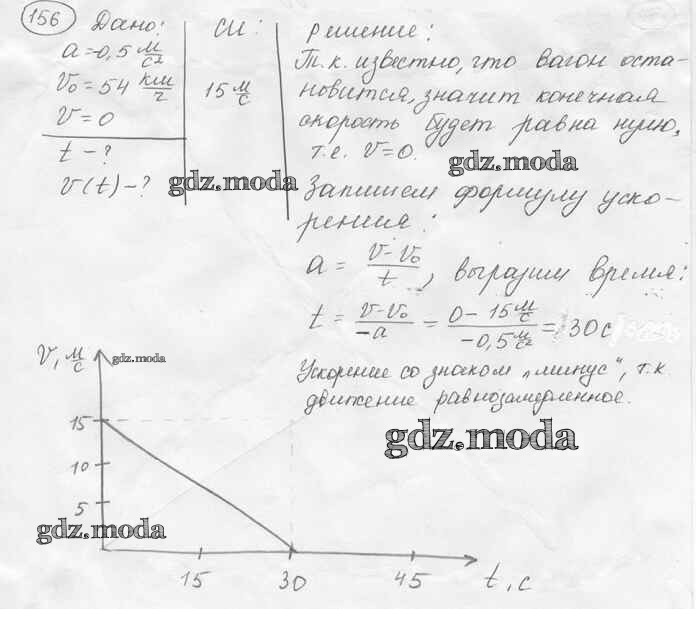 156 Дано:
a=0,5 м/с²
v₀=54 км/г
v=0
t-?
v(t)-?
СИ:
15 м/с
Решение:
Т.к. известно, что вагон оста-
новится, значит конечная
скорость будет равна нулю,
т.е. v=0.
gdz.moda
gdz.moda
Запишем формулу уско-
рения:
a = (v-v₀)/t, выразим время:
t = (v-v₀)/(-a) = (0-15 м/с)/(-0,5 м/с²) = 30с
Ускорение со знаком „минус", т.к
движение равнозамедленное.
gdz.moda
V, м/с
gdz.moda
15
10
5
gdz.moda
15 30 45 t, с